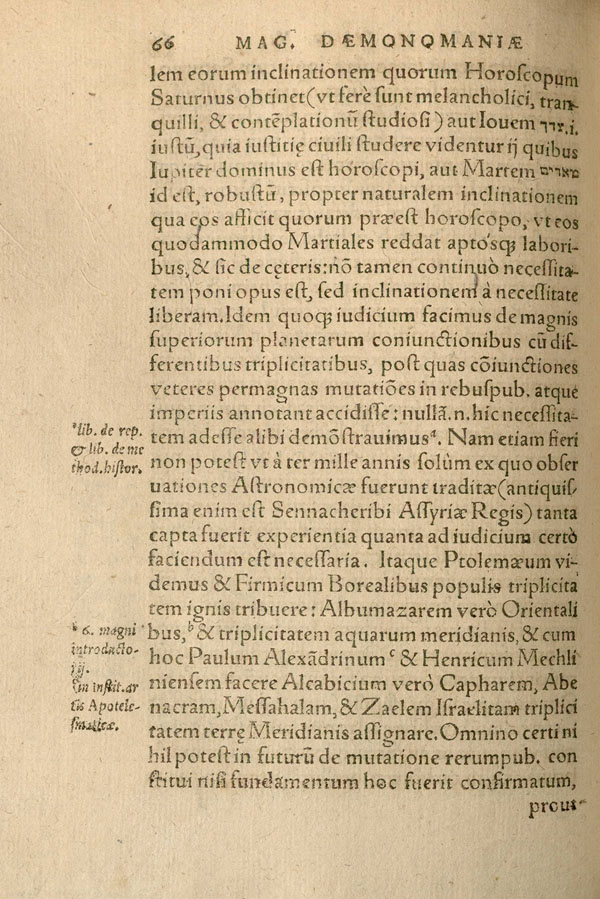 66 MAG. DÆMONOMANIÆ
lem eorum inclinationem quorum Horoſcopum
Saturnus obtinet (vt ferè ſunt melancholici, tran-
quilli, & contẽplationũ ſtudioſi) aut Iouem צדק .i.
iuſtũ, quia iuſtitię ciuili ſtudere videntur ij quibus
Iupiter dominus eſt horoſcopi, aut Martem מאדים
id eſt, robuſtũ, propter naturalem inclinationem
qua eos afficit quorum præeſt horoſcopo, vt eos
quodammodo Martiales reddat aptóſq; labori-
bus, & ſic de cęteris: nõ tamen continuò neceſſita-
tem poni opus eſt, ſed inclinationem à neceſſitate
liberam. Idem quoq; iudicium facimus de magnis
ſuperiorum planetarum coniunctionibus cũ dif-
ferentibus triplicitatibus, poſt quas cõiunctiones
veteres permagnas mutatiões in rebuſpub. atque
imperiis annotant accidiſſe: nullã .n. hic neceſſita-
tem adeſſe alibi demõſtrauimusᵃ. Nam etiam fieri
non poteſt vt à ter mille annis ſolùm ex quo obſer
uationes Aſtronomicæ fuerunt traditæ (antiquiſ-
ſima enim eſt Sennacheribi Aſſyriæ Regis) tanta
capta fuerit experientia quanta ad iudicium certò
faciendum eſt neceſſaria. Itaque Ptolemæum vi-
demus & Firmicum Borealibus populis triplicita
tem ignis tribuere: Albumazarem verò Orientali
bus,ᵇ & triplicitatem aquarum meridianis, & cum
hoc Paulum Alexãdrinumᶜ & Henricum Mechli
nienſem facere Alcabicium verò Capharem, Abe
nacram, Meſſahalam, & Zaelem Iſraelitam triplici
tatem terrę Meridianis aſſignare. Omnino certi ni
hil poteſt in futurũ de mutatione rerumpub. con
ſtitui niſi fundamentum hoc fuerit confirmatum,
prout
ᵃ lib. de rep.
& lib. de me
thod. hiſtor.
ᵇ 6. magni
introducto-
rij.
in inſtit. ar
tis Apotele-
ſmaticæ.